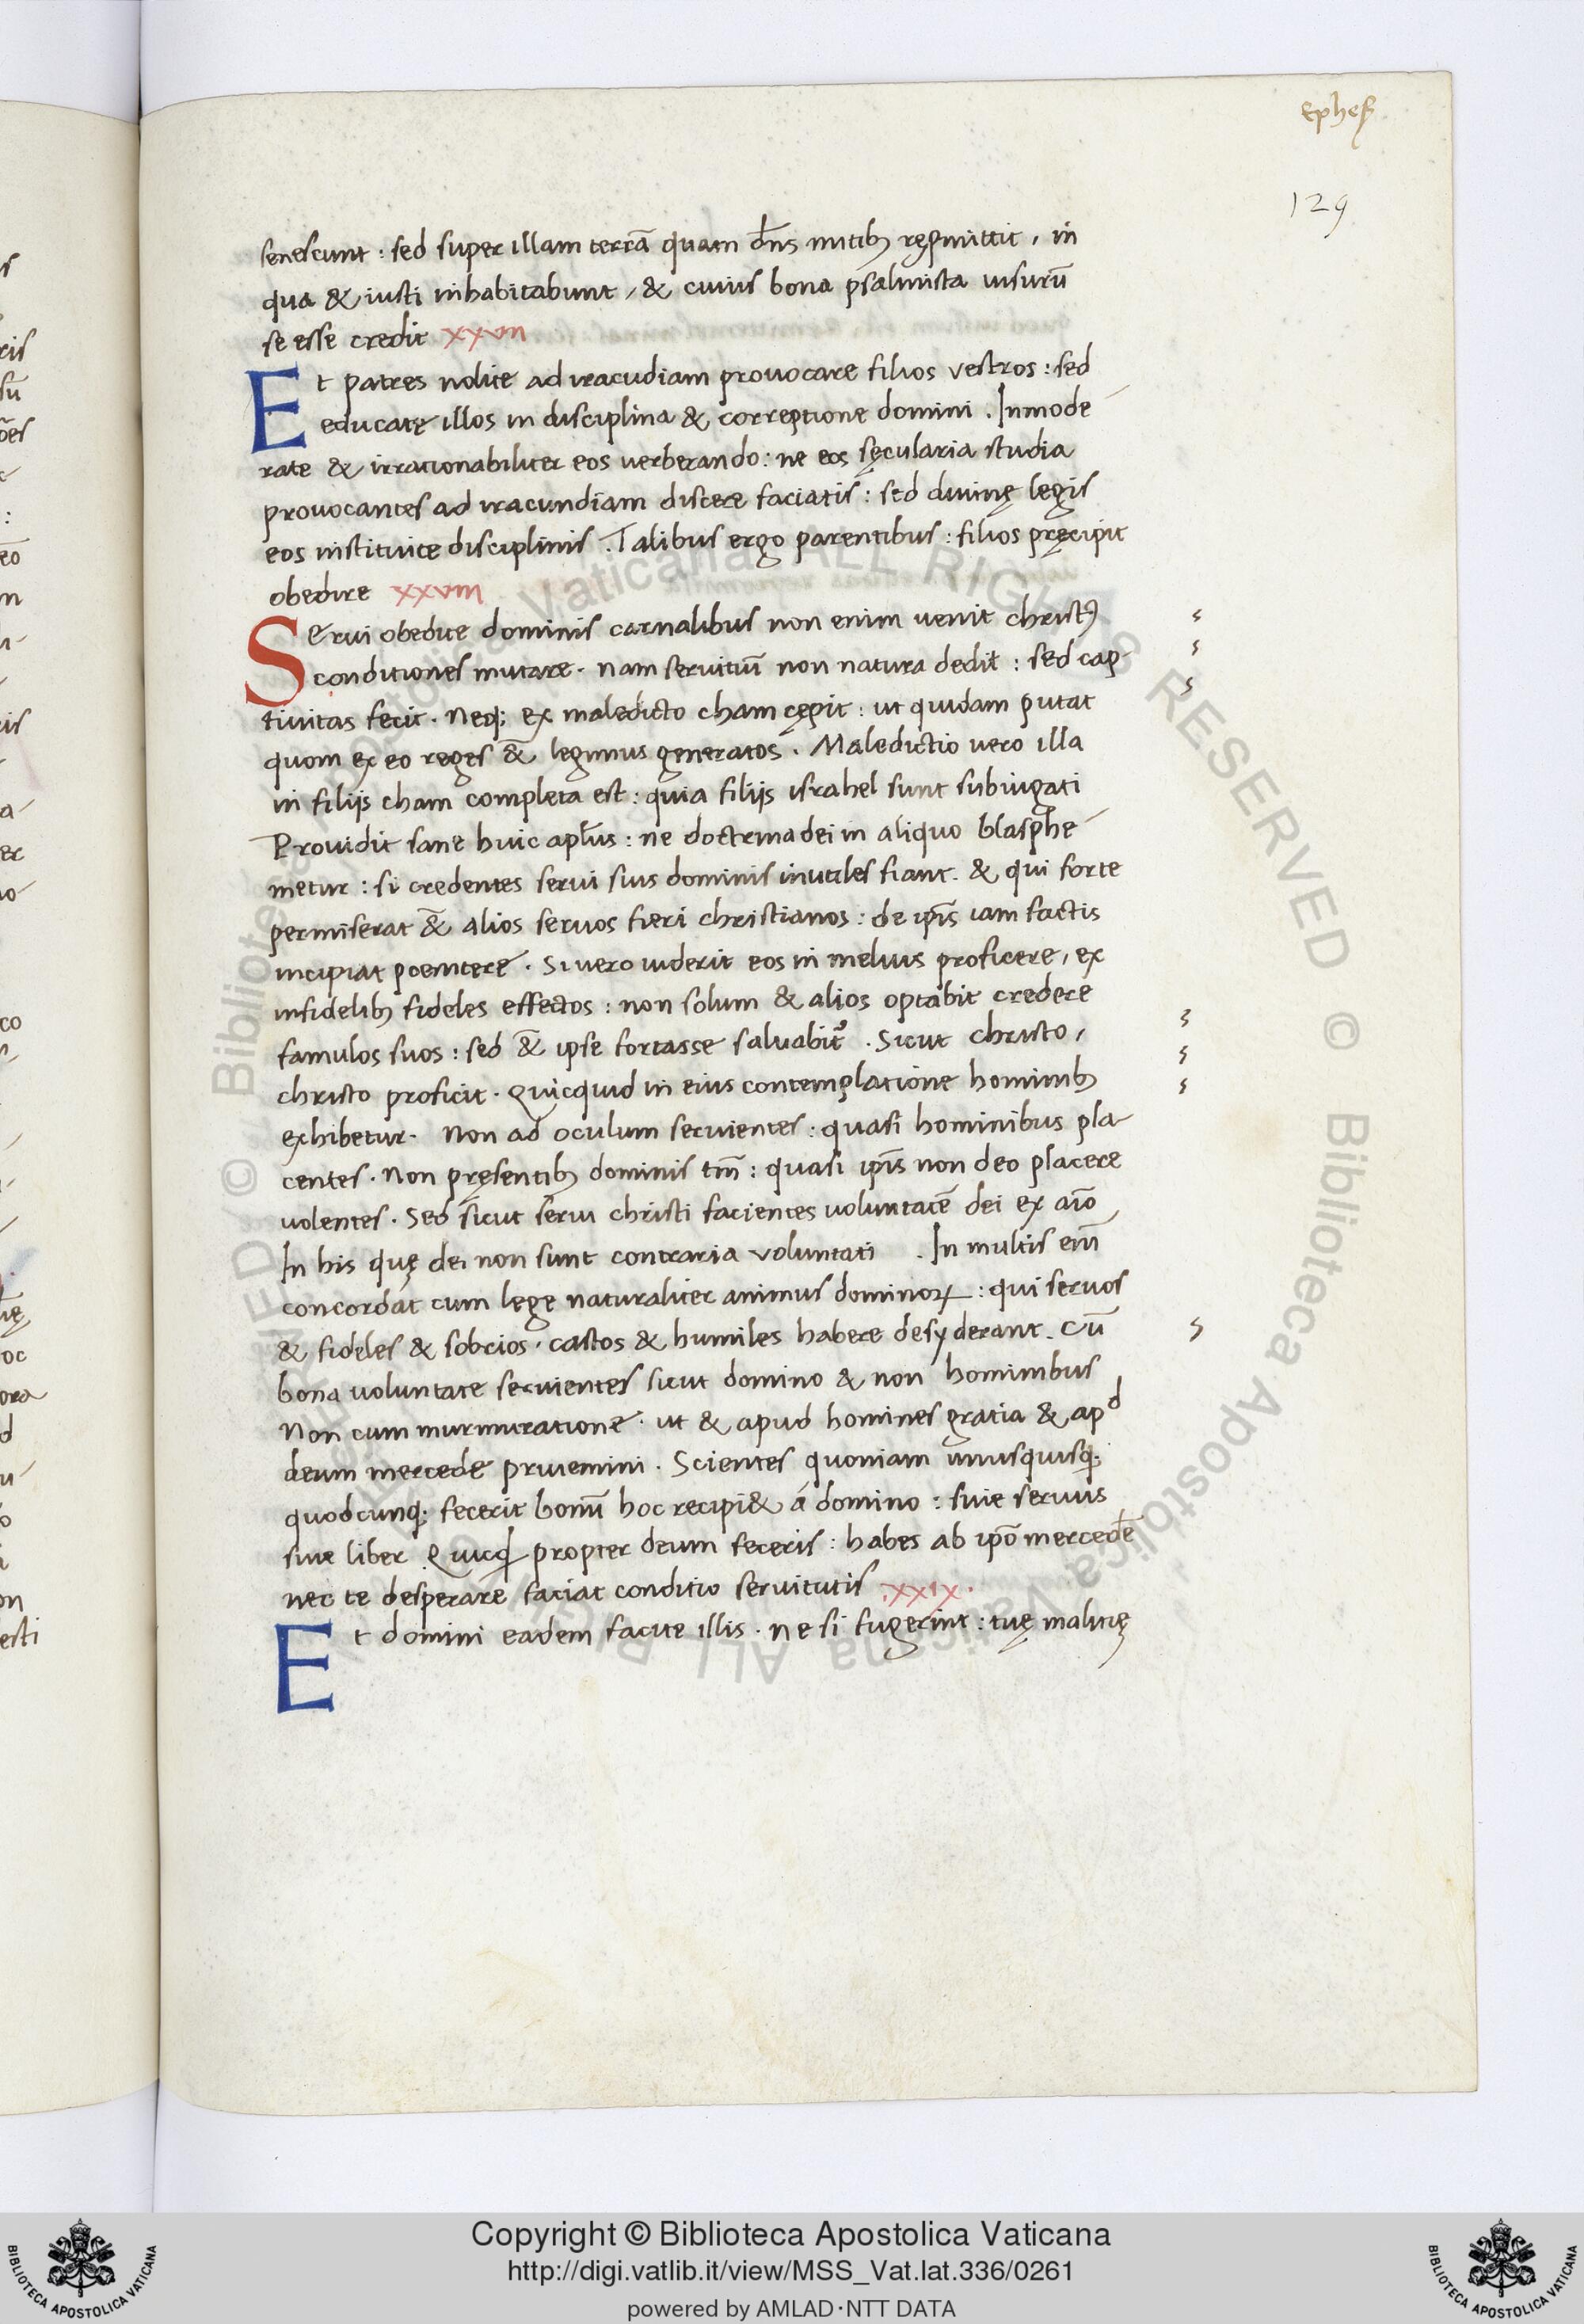 Ephes
129
senescunt : sed super illam terrā quam dn̄s mitib; repmittit , in
qua & iusti inhabitabunt , & cuius bona psalmista uisurū
se esse credit xxvii
Et patres nolite ad iracudiam prouocare filios vestros : sed
educatę illos in disciplina & correptione domini . Inmode
rate & irrationabiliter eos uerberando : ne eos sęcularia studia
prouocantes ad iracundiam discere faciatis : sed diuinę legis
eos instituite disciplinis . Talibus ergo parentibus : filios pręcipit
obedire xxviii
Serui obedite dominis carnalibus non enim uenit christꝰ
conditiones mutare . nam seruitiū non natura dedit : sed cap-
tiuitas fecit . neq; ex maledicto cham cępit : ut quidam putat
quom ex eo reges &̄ legimus generatos . Maledictio uero illa
in filijs cham completa est : quia filijs israhel sunt subiugati
Prouidit sane huic apl̄us : ne doctrina dei in aliquo blasphe
metur : si credentes serui suis dominis inutiles fiant . & qui forte
permiserat &̄ alios seruos fieri christianos : de ip̄is iam factis
incipiat poenitere . Si uero uiderit eos in melius proficere , ex
infidelib; fideles effectos : non solum & alios optabit credere
famulos suos : sed &̄ ipse fortasse saluabit᷑ . Sicut christo ,
christo proficit . Quicquid in eius contemplatione hominib;
exhibetur . Non ad oculum seruientes : quasi hominibus pla-
centes . Non pręsentib; dominis tm̄ : quasi ip̄is non deo placere
uolentes . Sed sicut serui christi facientes uoluntatē dei ex aīo
In his quę dei non sunt contraria voluntati . In multis eīm
concordat cum lege naturaliter animus dominoꝝ : qui seruos
& fideles & sobrios . castos & humiles habere desyderant . Cū
bona uoluntate seruientes sicut domino & non hominibus
Non cum murmuratione . ut & apud homines gratia & apd
deum mercede priuemini . Scientes quoniam unusquisq;
quodcunq; fecerit bonū hoc recipi& á domino : siue seruus
siue liber Quicqd propter deum feceris : habes ab ip̄o mercedē
nec te desperare faciat conditio seruitutis .xxix.
Et domini eadem facite illis . ne si fugerint : tuę malitię
Copyright © Biblioteca Apostolica Vaticana
http://digi.vatlib.it/view/MSS_Vat.lat.336/0261
powered by AMLAD·NTT DATA
BIBLIOTECA APOSTOLICA VATICANA
BIBLIOTECA APOSTOLICA VATICANA